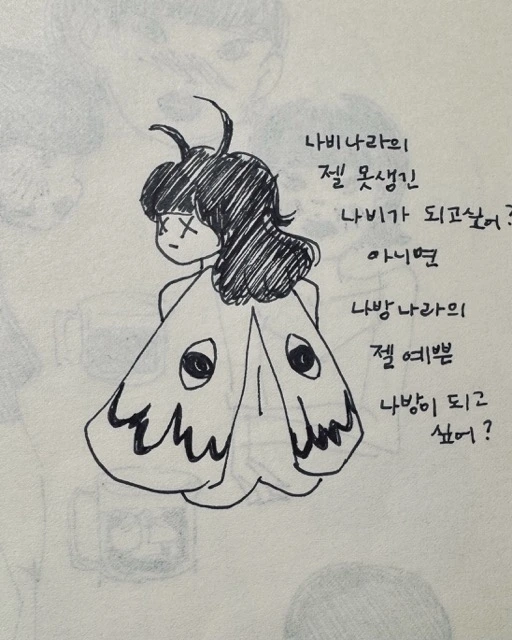 나비나라의
젤 못생긴
나비가 되고싶어?
아니면
나방나라의
젤 예쁜
나방이 되고
싶어?